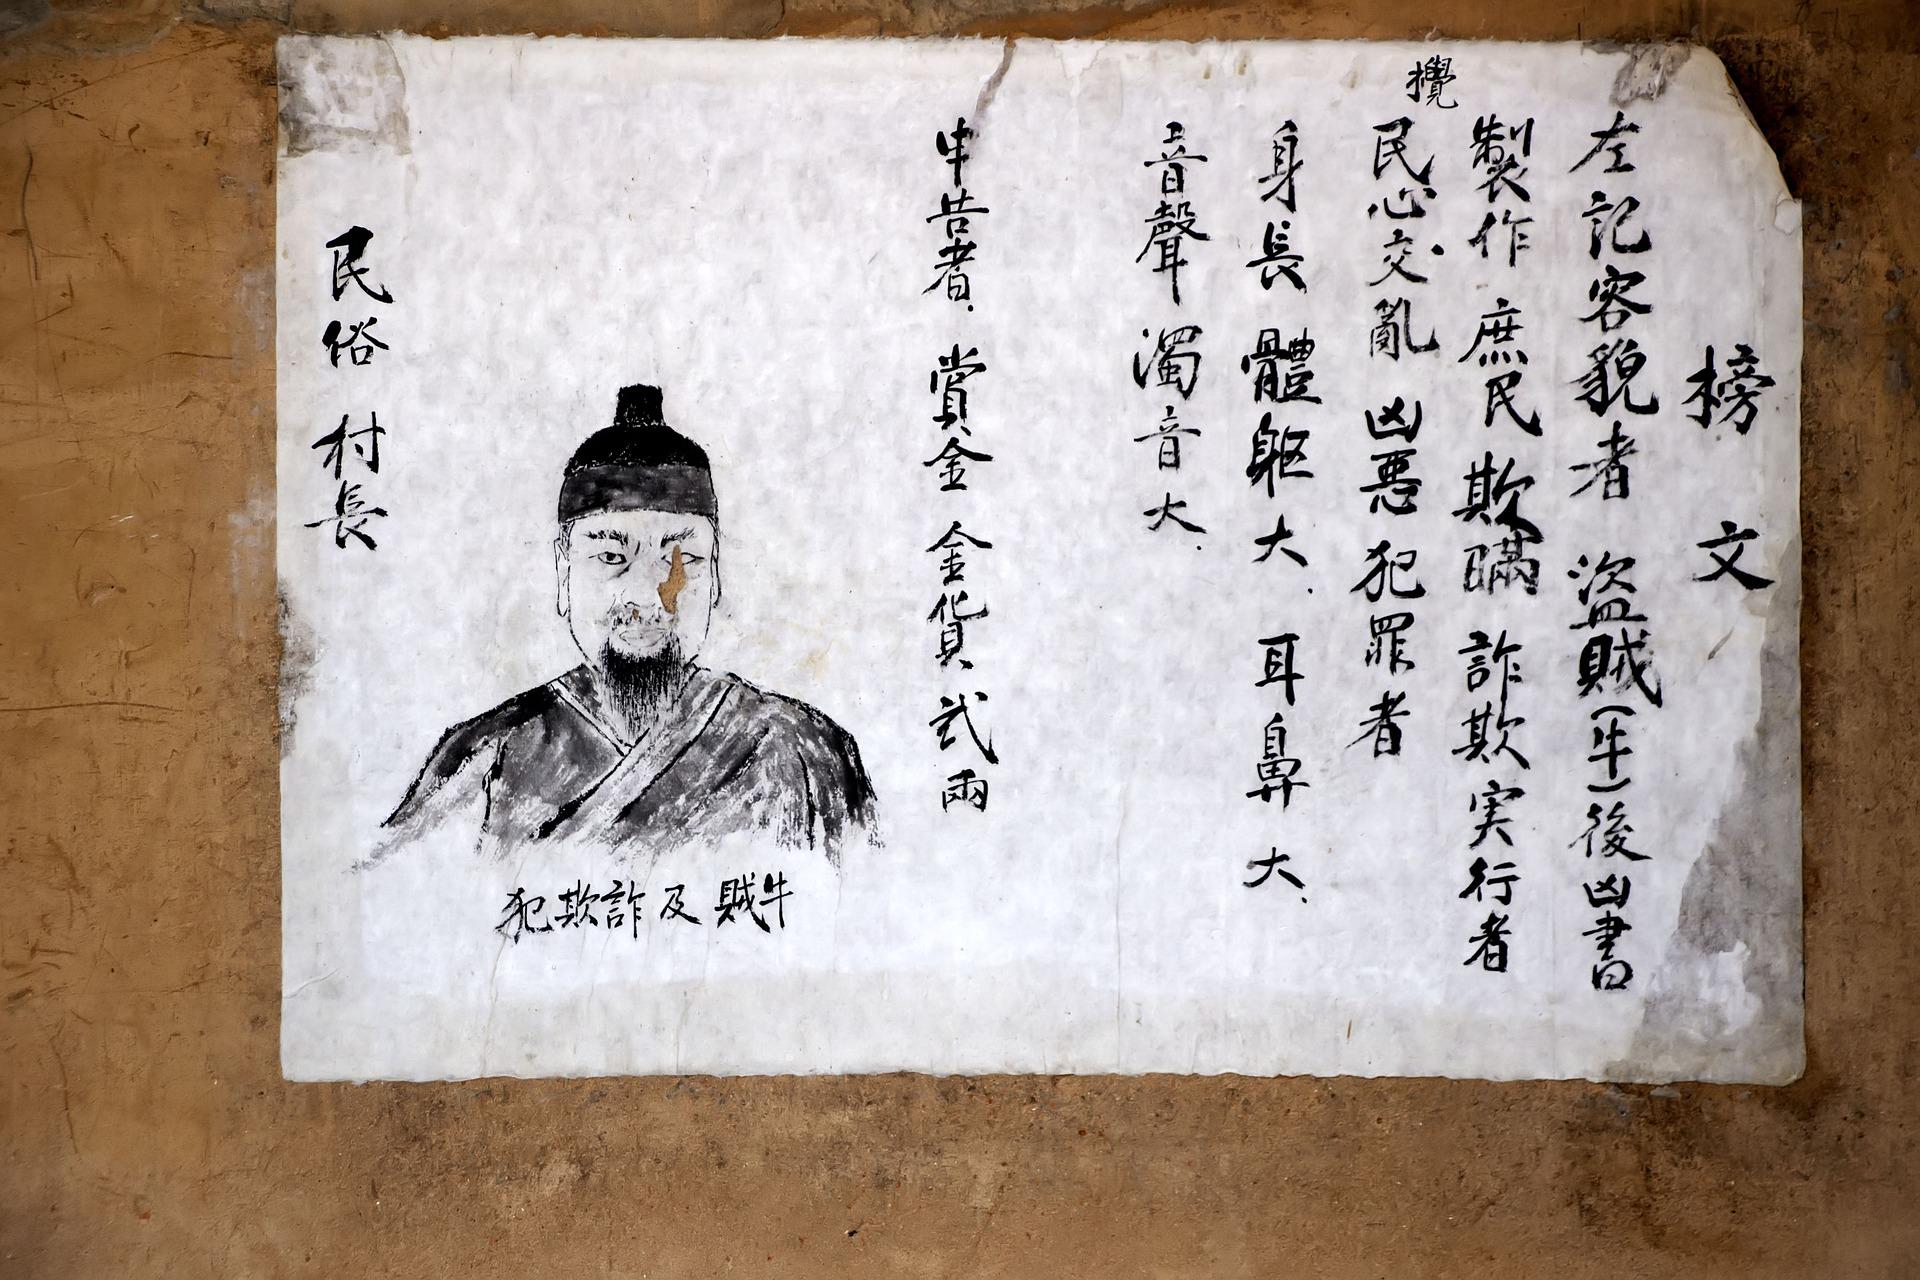 榜文
左記容貌者 盜賊(牛)後凶書
製作 庶民 欺瞞 詐欺実行者
攪
民心交亂 凶惡犯罪者
身長 體軀大. 耳鼻大.
音聲 濁音大.
申告者. 賞金 金貨 弐兩
犯欺詐及 賊牛
民俗 村長